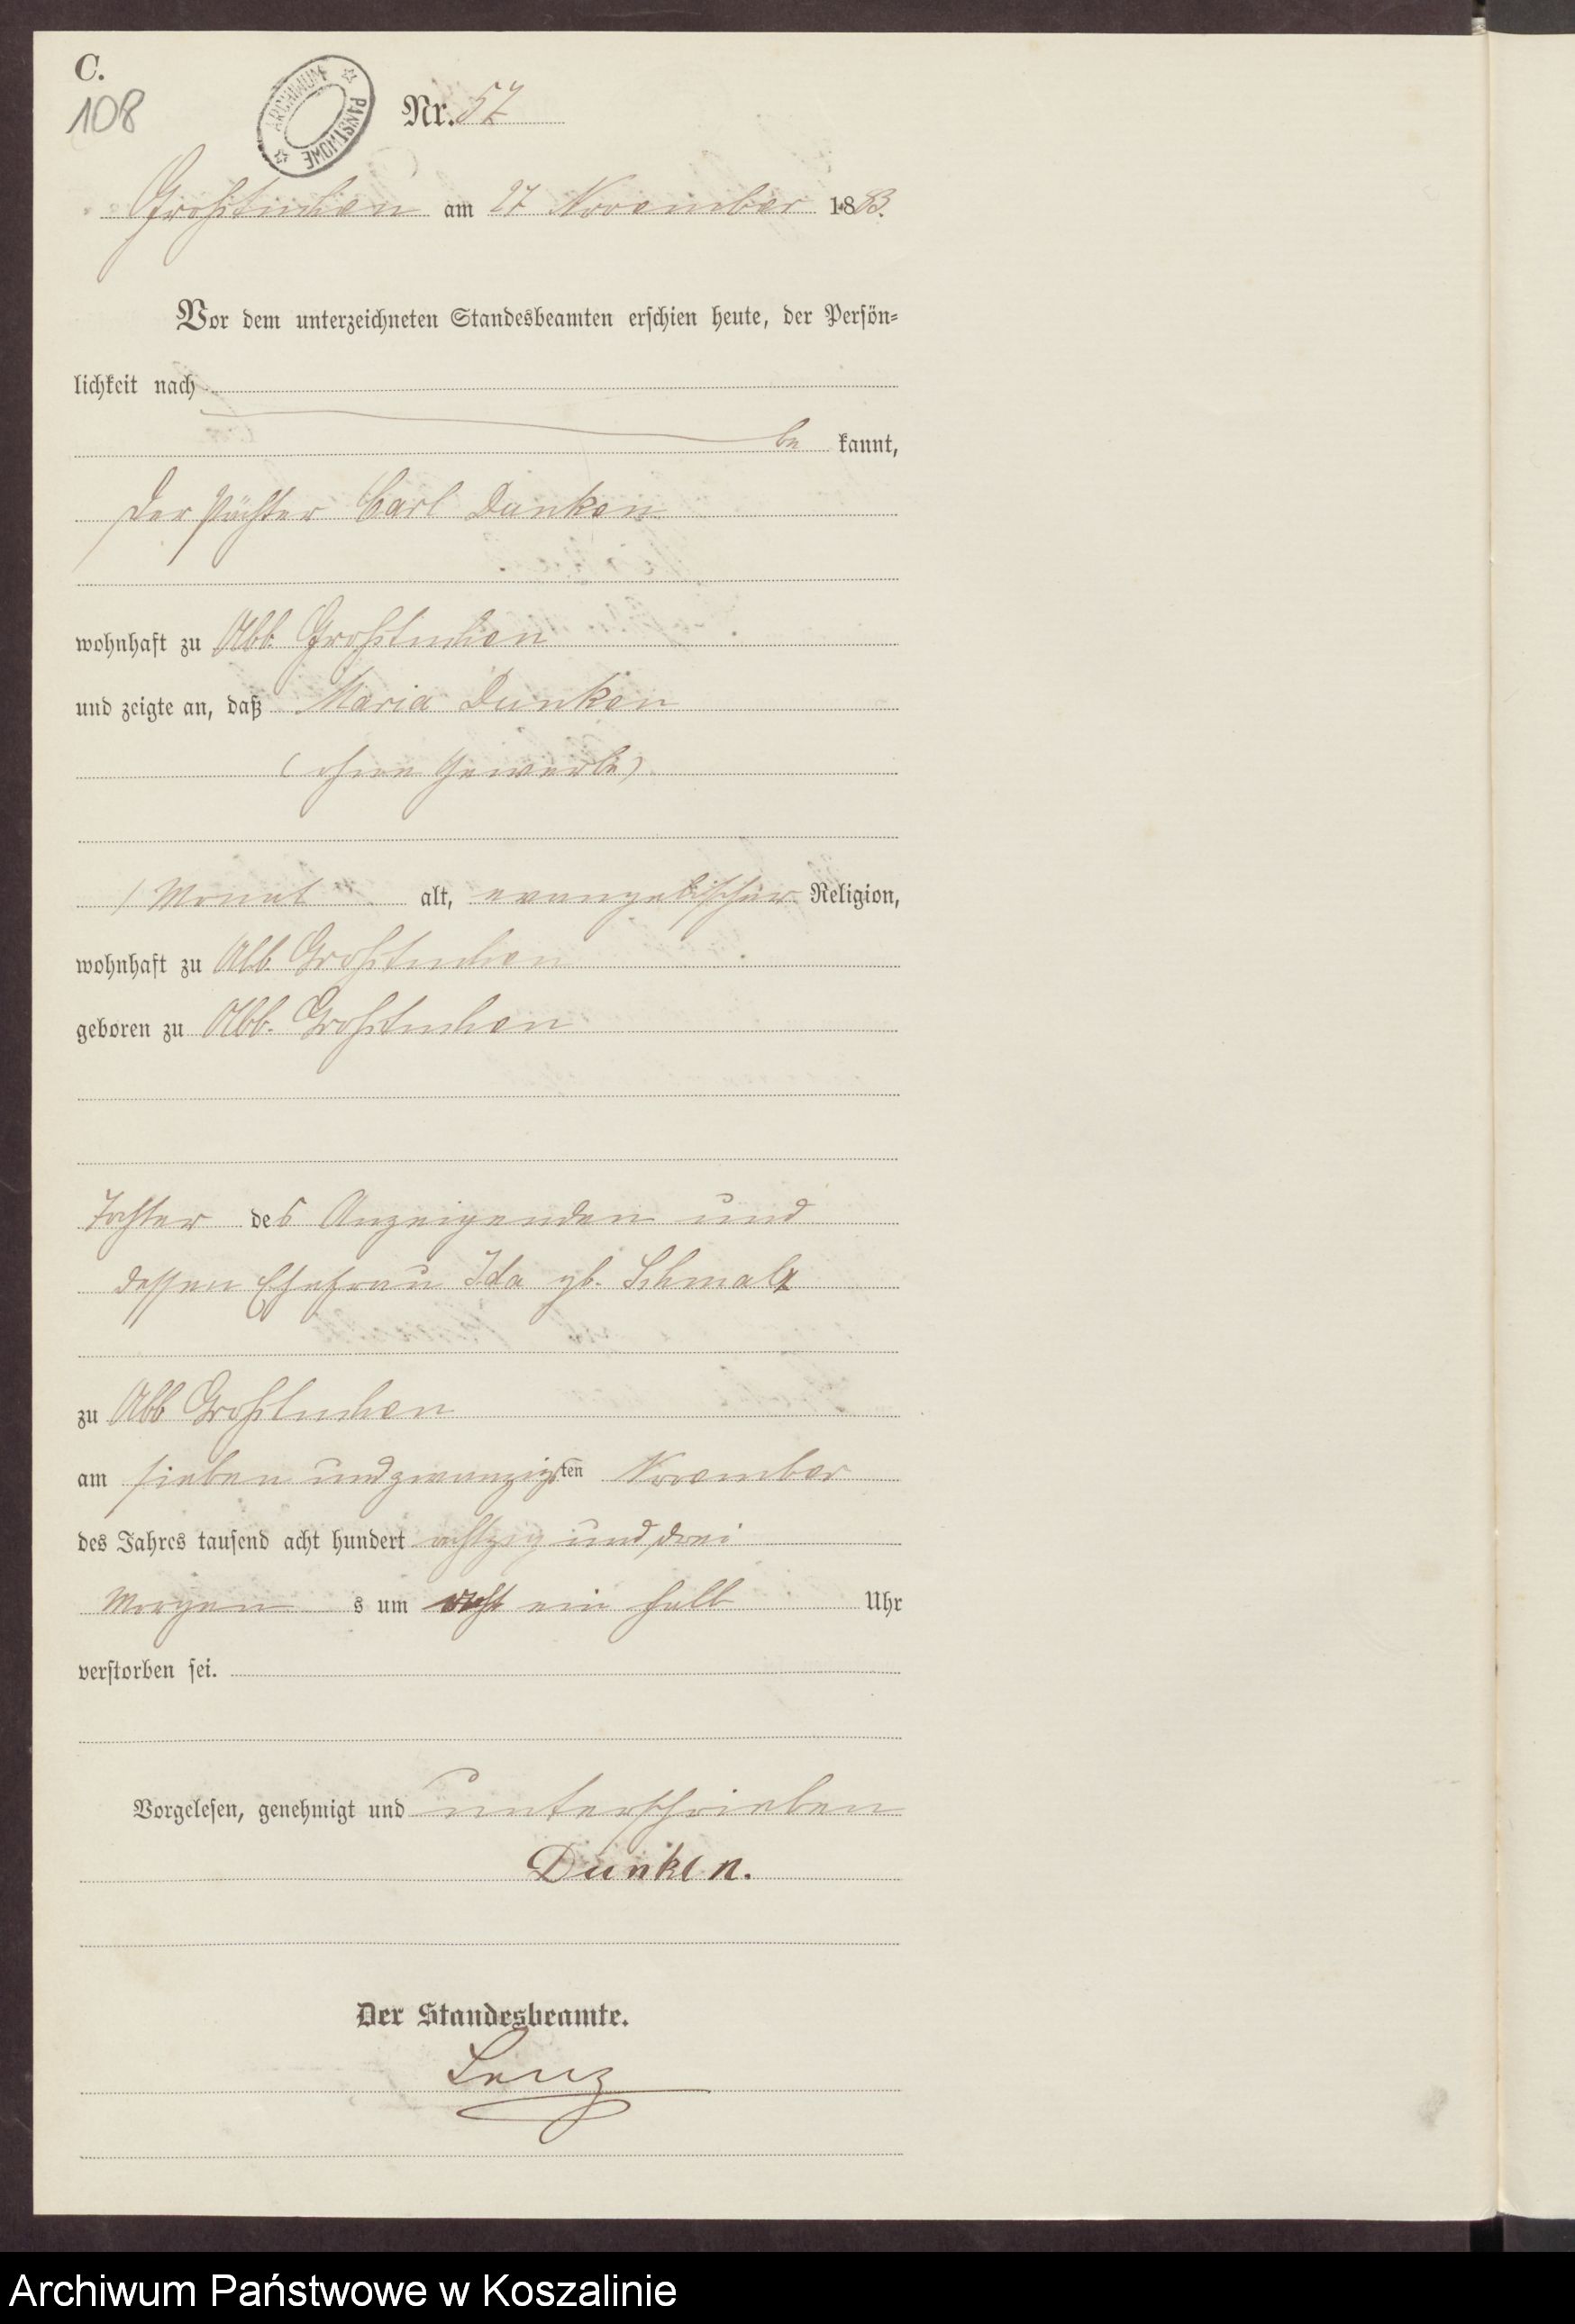 C.
108
ARCHIWUM PAŃSTWOWE
Nr. 57
Großtuchen am 27 November 1883.
Vor dem unterzeichneten Standesbeamten erschien heute, der Persön=
lichkeit nach
be kannt,
der Pächter Carl Dunken
wohnhaft zu Abb. Großtuchen
und zeigte an, daß Maria Dunken
(ohne Gewerbe)
1 Monat alt, evangelischer Religion,
wohnhaft zu Abb. Großtuchen
geboren zu Abb. Großtuchen
Tochter des Anzeigenden und
dessen Ehefrau Ida gb. Schmalz
zu Abb Großtuchen
am sieben und zwanzigsten November
des Jahres tausend acht hundert achtzig und drei
Morgens um acht ein halb Uhr
verstorben sei.
Vorgelesen, genehmigt und unterschrieben
Dunken.
Der Standesbeamte.
Lenz
Archiwum Państwowe w Koszalinie